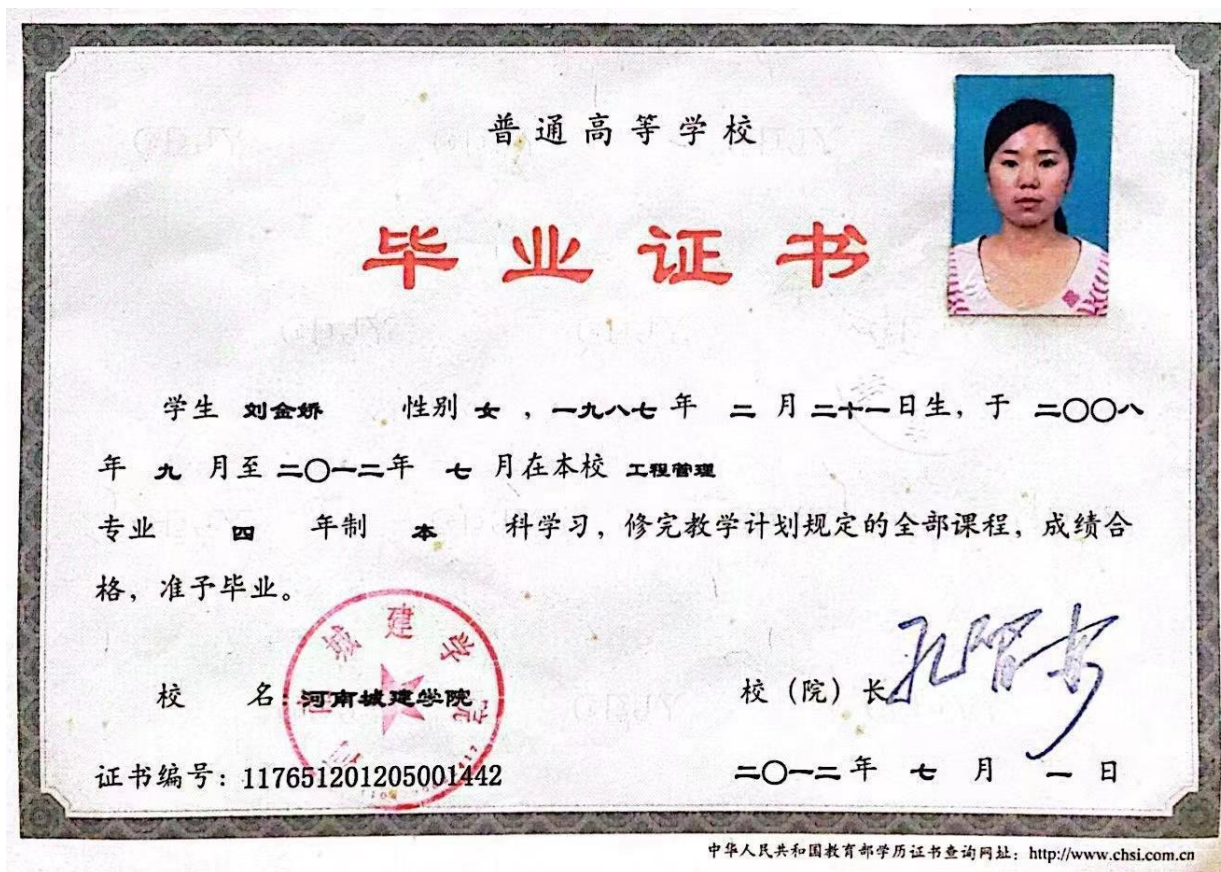 普通高等学校
毕业证书
学生 刘金娇 性别 女 ，一九八七 年 二 月 二十一 日生，于 二〇〇八
年 九 月至 二〇一二 年 七 月在本校 工程管理
专业 四 年制 本 科学习，修完教学计划规定的全部课程，成绩合
格，准予毕业。
校 名：河南城建学院
校（院）长
证书编号：117651201205001442
二〇一二 年 七 月 一 日
中华人民共和国教育部学历证书查询网址：http://www.chsi.com.cn